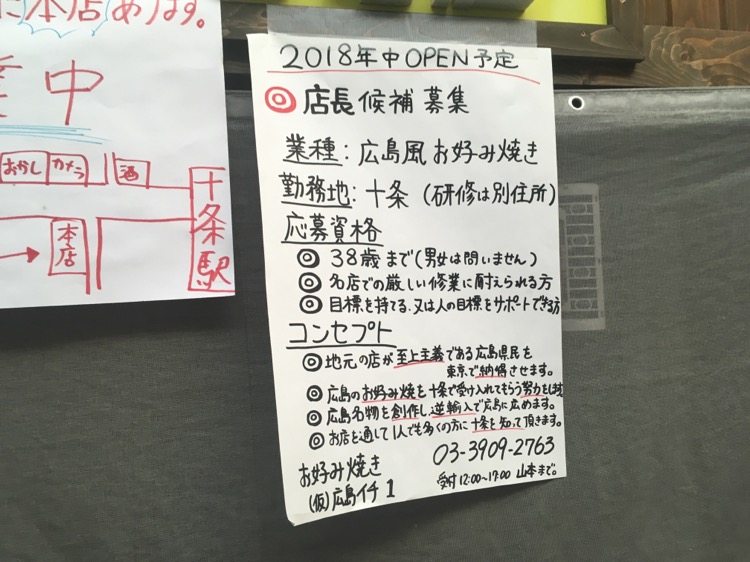 に本店めます。
中
おかし
カメラ
酒
十条駅
本店
2018年中OPEN予定
◎店長候補募集
業種：広島風お好み焼き
勤務地：十条（研修は別住所）
応募資格
◎38歳まで（男女は問いません）
◎名店での厳しい修業に耐えられる方
◎目標を持てる.又は人の目標をサポートできる方
コンセプト
◎地元の店が至上主義である広島県民を
東京で納得させます。
◎広島のお好み焼を十条で受け入れてもらう努力をします
◎広島名物を創作し逆輸入で広島に広めます。
◎お店を通して1人でも多くの方に十条を知って頂きます。
お好み焼き
(仮)広島イチ1
03-3909-2763
受付12:00〜17:00 山本まで。